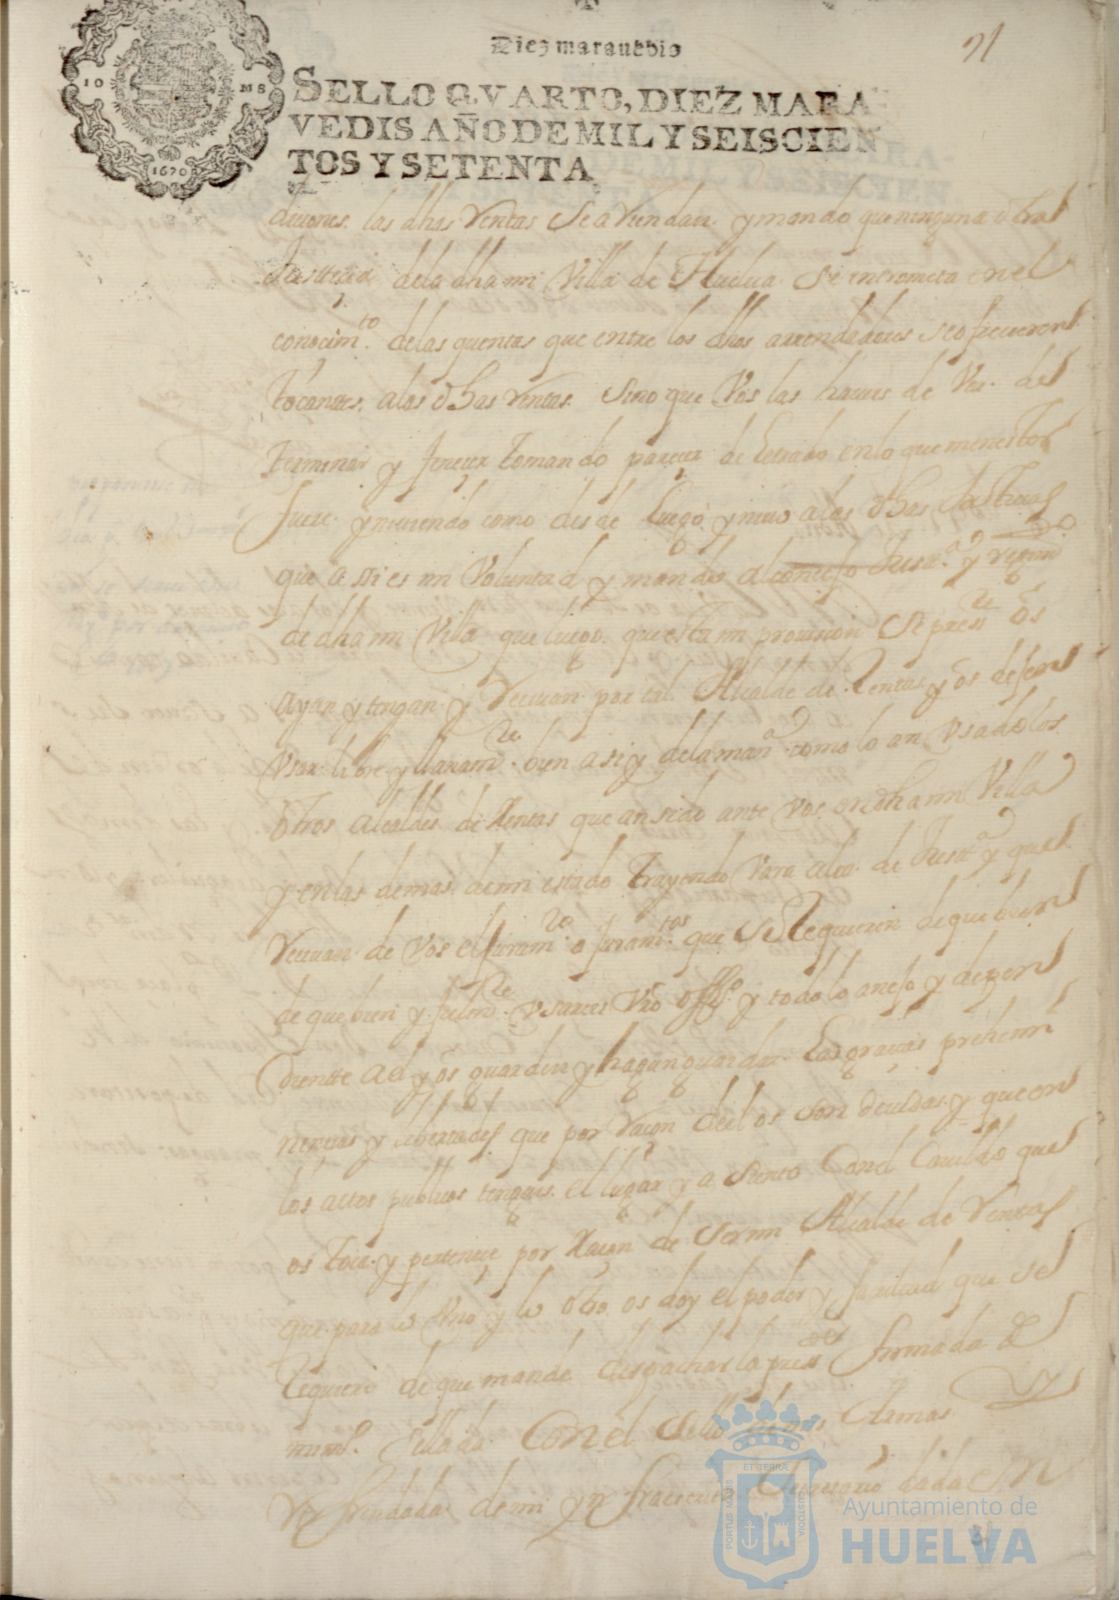 21
Diez marauedis
SELLO QVARTO, DIEZ MARA
VEDIS AÑO DE MIL Y SEISCIEN
TOS Y SETENTA
10 MS
1670
diciones las dhas Ventas Se aRiendan y mando que ninguna otra
Justicia dela dha mi Villa de Huelua Se intrometa en el
conocimto. delas quentas que entre los dhos arrendadores se ofrecieren
tocantes alas dhas Rentas Sino que Vos las haueis de Ver de
terminar y feneçer tomando pareçer de Letrado en lo que menester
fuere y nombro como desde luego y niuo a las dhas Justicias
que assi es mi Voluntad y mando al conçejo Justa. y regimo
de dha mi Villa que luego que esta mi prouision Se presste os
ayan y tengan y Reciuan por tal Alcalde de Rentas y os dejen
Vsar libre y llanamte. bien asi y dela mana. como lo an Vsado los
otros Alcaldes de Rentas que an sido ante Vos en dha mi Villa
y en las demas de mi estado trayendo Vara alta de Justa. y que
Reciuan de Vos el juramto. o juramtos que Se Requieren de que bien
de que bien y fielmte. Vsareis Vro offo. y todo lo anejo y depen
diente a el y os guarden y hagan guardar las graçias prehemi
nencias y libertades que por Raçon dellos son deuidas y que en
los actos publicos tengais el lugar y asiento Con el Cauildo que
os toca y perteneçe por Raçon de Ser mi Alcalde de Rentas
que para lo Vno y lo otro os doy el poder y facultad que se
Requiere de que mande despachar la presste firmada de
mi mo. Sellada Con el Sello de mis Armas y
Refrendada de mi ynfraescrito Secretario dada en
PORTUS MARIS ET TERRÆ CUSTODIA
Ayuntamiento de
HUELVA